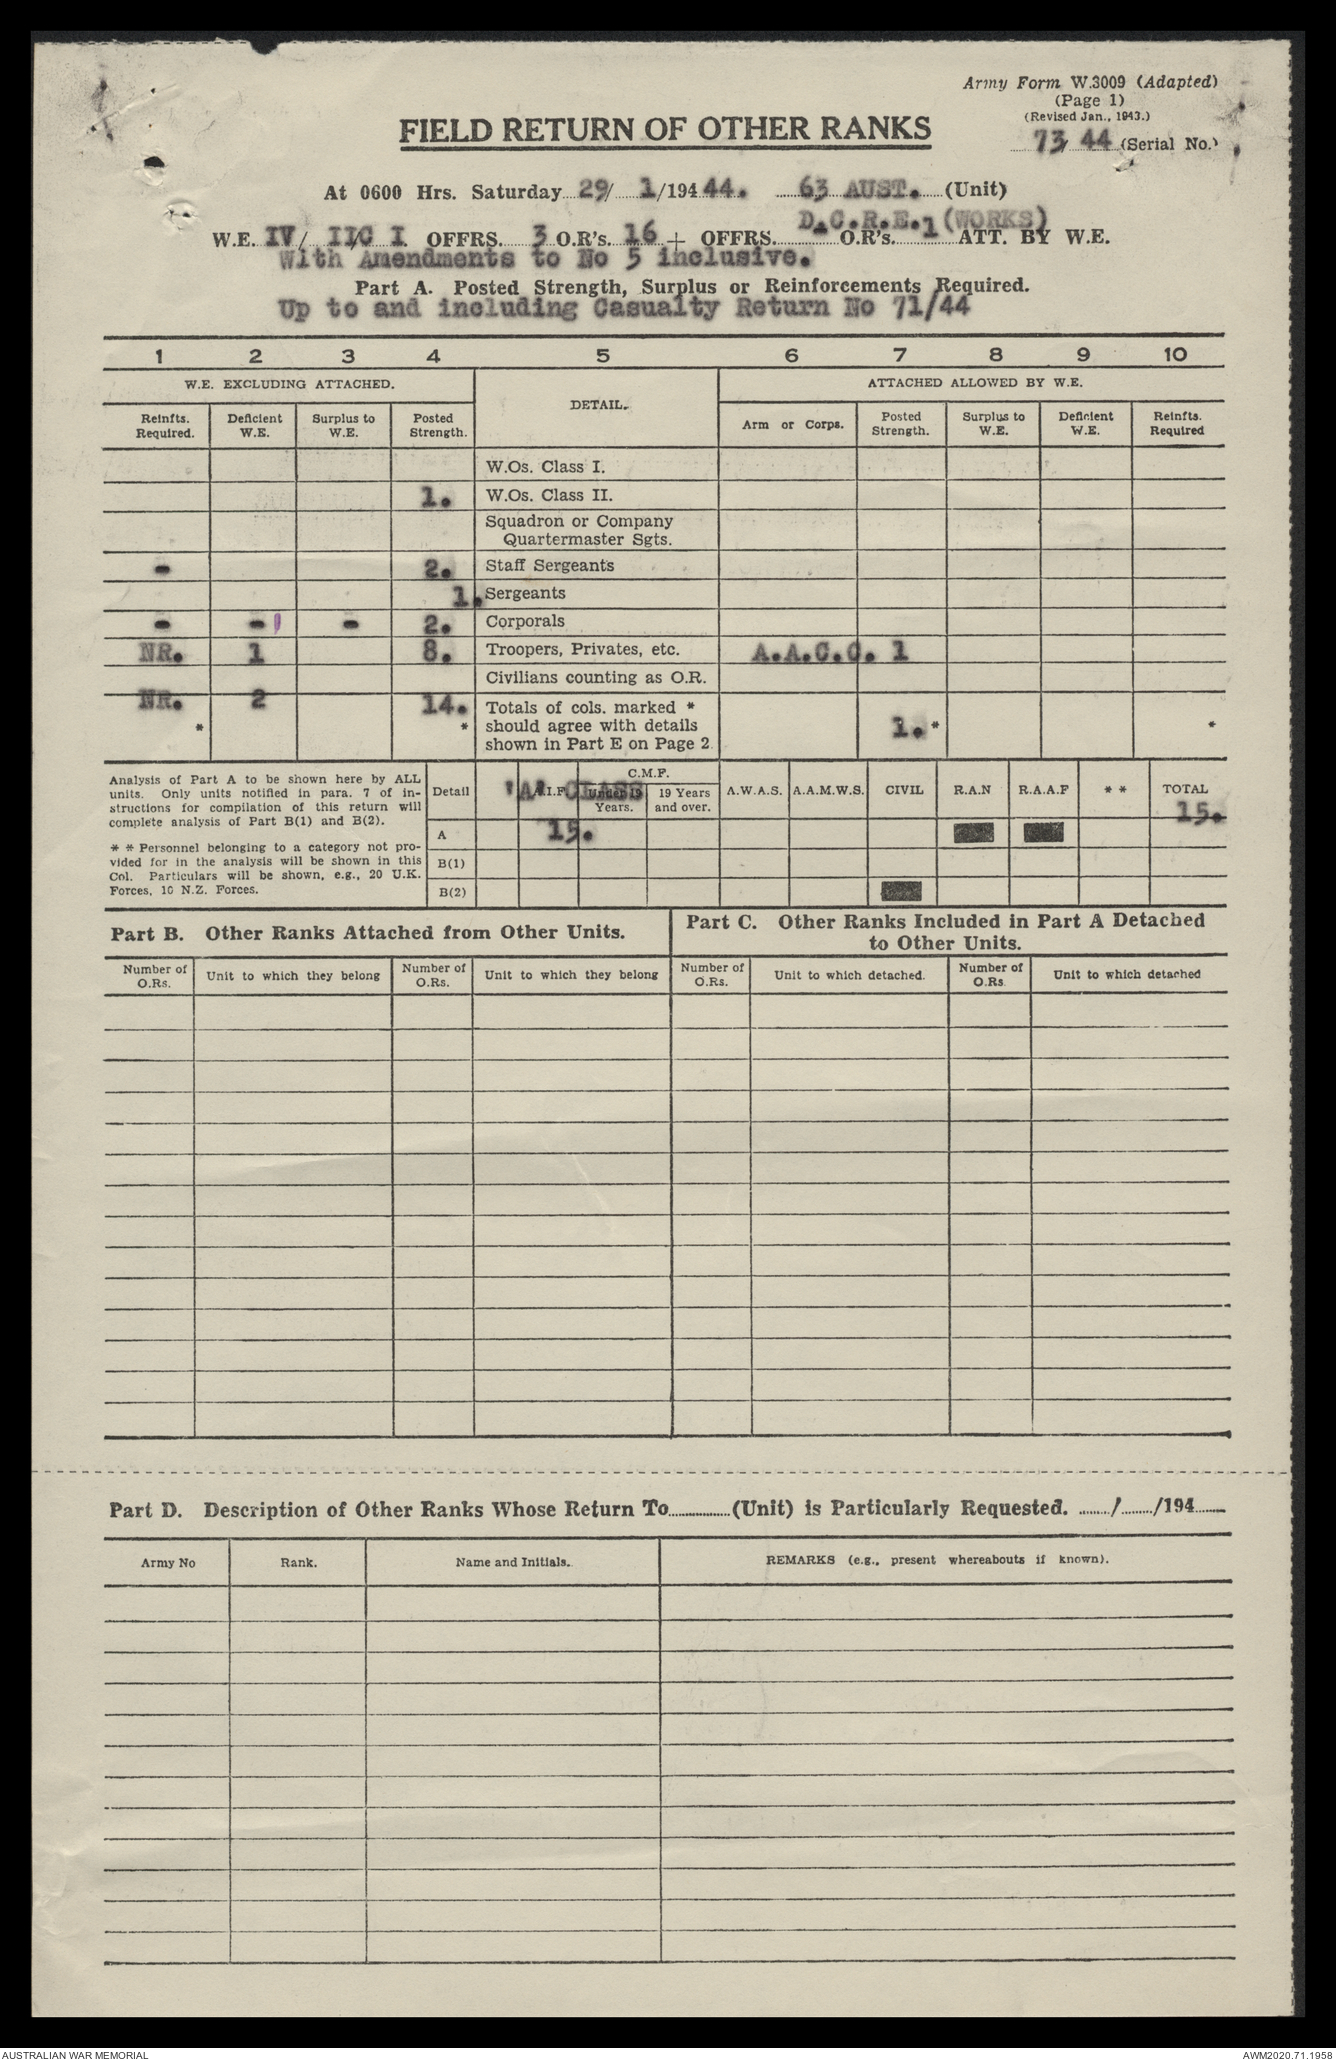 Army Form W.3009 (Adapted)
(Page 1)
(Revised Jan., 1943.)
FIELD RETURN OF OTHER RANKS
73/ 44 (Serial No.)
At 0600 Hrs. Saturday 29/ 1/194 44. 63 AUST. (Unit)
D.C.R.E. (WORKS)
W.E. IV/ II/C I. OFFRS. 3 O.R's. 16 + OFFRS. O.R's. 1 ATT. BY W.E.
With Amendments to No 5 inclusive.
Part A. Posted Strength, Surplus or Reinforcements Required.
Up to and including Casualty Return No 71/44
1 2 3 4 5 6 7 8 9 10
W.E. EXCLUDING ATTACHED. DETAIL. ATTACHED ALLOWED BY W.E.
Reinfts. Required. Deficient W.E. Surplus to W.E. Posted Strength. Arm or Corps. Posted Strength. Surplus to W.E. Deficient W.E. Reinfts. Required
W.Os. Class I.
1. W.Os. Class II.
Squadron or Company
Quartermaster Sgts.
- 2. Staff Sergeants
1. Sergeants
- - 1 - 2. Corporals
NR. 1 8. Troopers, Privates, etc. A.A.C.C. 1
Civilians counting as O.R.
NR. 2 14. Totals of cols. marked *
* * should agree with details 1. * *
shown in Part E on Page 2.
Analysis of Part A to be shown here by ALL
units. Only units notified in para. 7 of in-
structions for compilation of this return will
complete analysis of Part B(1) and B(2).
* * Personnel belonging to a category not pro-
vided for in the analysis will be shown in this
Col. Particulars will be shown, e.g., 20 U.K.
Forces, 10 N.Z. Forces.
C.M.F.
Detail 'A' CLASS A.I.F. Under 19 Years. 19 Years and over. A.W.A.S. A.A.M.W.S. CIVIL R.A.N R.A.A.F * * TOTAL
A 15. 15.
B(1)
B(2)
Part B. Other Ranks Attached from Other Units.
Part C. Other Ranks Included in Part A Detached
to Other Units.
Number of O.Rs. Unit to which they belong Number of O.Rs. Unit to which they belong Number of O.Rs. Unit to which detached. Number of O.Rs Unit to which detached
Part D. Description of Other Ranks Whose Return To (Unit) is Particularly Requested. / /194
Army No Rank. Name and Initials. REMARKS (e.g., present whereabouts if known).
AUSTRALIAN WAR MEMORIAL AWM2020.71.1958